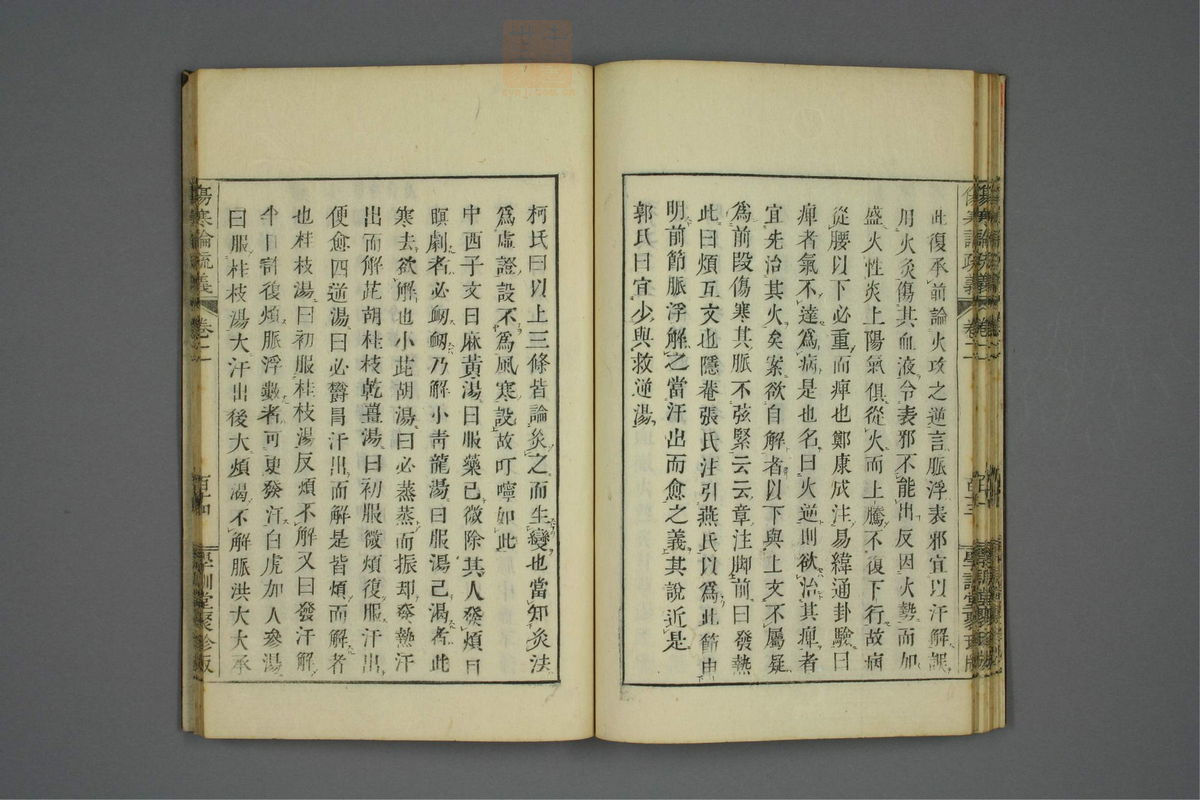 此復承前論火攻之逆言脈浮表邪宜以汗解誤
用火灸傷其血液令表邪不能出反因火勢而加
盛火性炎上陽氣俱從火而上騰不復下行故病
從腰以下必重而痺也鄭康成注易緯通卦驗曰
痺者氣不達爲病是也名曰火逆則欲治其痺者
宜先治其火矣案欲自解者以下與上文不屬疑
爲前段傷寒其脈不弦緊云云章注脚前曰發熱
此曰煩互文也隱菴張氏注引燕氏以爲此節申
明前節脈浮解之當汗出而愈之義其說近是
郭氏曰宜少與救逆湯
傷寒論疏義
卷二
百十三
學訓堂聚珍版
柯氏曰以上三條皆論灸之而生變也當知灸法
爲虛證設不爲風寒設故叮嚀如此
中西子文曰麻黃湯曰服藥已微除其人發煩目
瞑劇者必衄衄乃解小青龍湯曰服湯已渴者此
寒去欲解也小茈胡湯曰必蒸蒸而振却發熱汗
出而解茈胡桂枝乾薑湯曰初服微煩復服汗出
便愈四逆湯曰必鬱冒汗出而解是皆煩而解者
也桂枝湯曰初服桂枝湯反煩不解又曰發汗解
半日許復煩脈浮數者可更發汗白虎加人參湯
曰服桂枝湯大汗出後大煩渴不解脈洪大大承
傷寒論疏義
卷二
百十四
學訓堂聚珍版